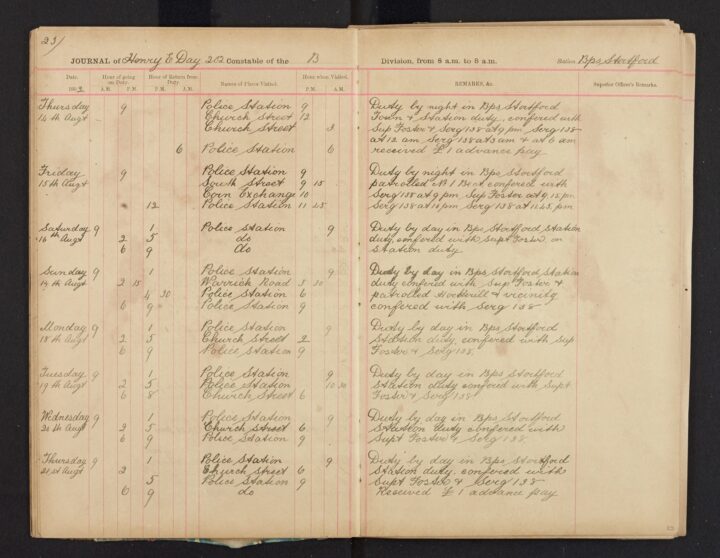 23/
JOURNAL of Henry E Day 282 Constable of the B Division, from 8 a.m. to 8 a.m. Station Bps Stortford
Date. Hour of going on Duty. Hour of Return from Duty. Names of Places Visited. Hour when Visited. REMARKS, &c. Superior Officer's Remarks.
A.M. P.M. P.M. A.M. P.M. A.M.
Thursday 9 Police Station 9 Duty by night in Bps Stortford
14th Augt Church Street 12 Town & Station duty, confered with
Church Street 3 Sup Foster & Serg 138 at 9 pm Serg 138
at 12 am Serg 138 at 3 am & at 6 am
6 Police Station 6 received £1 advance pay
Friday 9 Police Station 9 Duty by night in Bps Stortford
15th Augt South Street 9 15 patrolled No 1 Beat confered with
Corn Exchange 10 Serg 138 at 9 pm Sup Foster at 9.15 pm
12 Police Station 11 45 Serg 138 at 10 pm Serg 138 at 11.45 pm
Saturday 9 1 Police Station 9 Duty by day in Bps Stortford Station
16th Augt 2 5 do duty confered with Supt Foster on
6 9 do Station duty
Sunday 9 1 Police Station 9 Duty by day in Bps Stortford Station
2 15 Warrick Road 3 30 duty confered with Sup Foster &
4 30 Police Station 6 patrolled Hockerill & vicinity
6 9 Police Station 9 confered with Serg 138
Monday 9 1 Police Station 9 Duty by day in Bps Stortford
18th Augt 2 5 Church Street 2 Station duty confered with Sup
6 9 Police Station 9 Foster & Serg 138.
Tuesday 9 1 Police Station 9 Duty by day in Bps Stortford
19th Augt 2 5 Police Station 10 30 Station duty confered with Supt
6 8 Church Street 6 Foster & Serg 138
Wednesday 9 1 Police Station 9 Duty by day in Bps Stortford
20th Augt 2 5 Church Street 6 Station duty confered with
6 9 Police Station 9 Supt Foster & Serg 138
Thursday 9 1 Police Station 9 Duty by day in Bps Stortford
21st Augt 2 Church Street 6 Station duty. confered with
5 Police Station 9 Supt Foster & Serg 138
6 9 do Received £1 advance pay